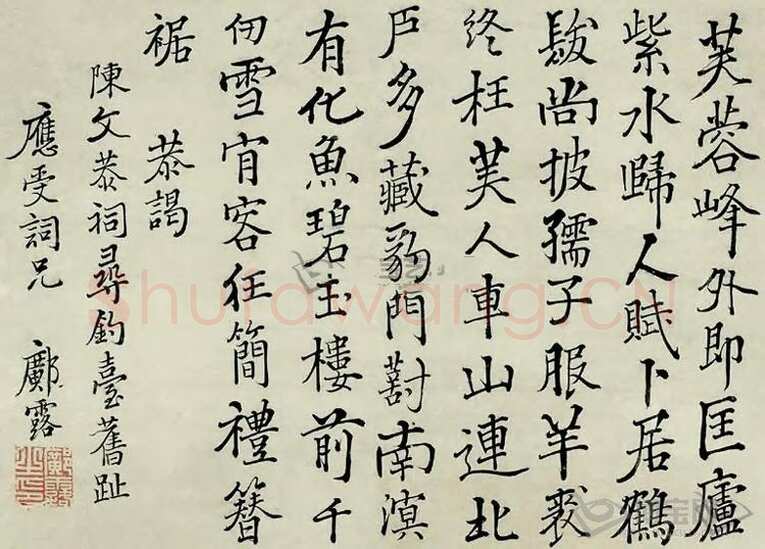 芙蓉峰外即匡廬
紫水歸人賦卜居鶴
髮尚披孺子服羊裘
終枉美人車山連北
戶多藏豹門對南溟
有化魚碧玉樓前千
仞雪肯容狂簡禮簪
裾 恭謁
陳文恭祠尋釣臺舊趾
應受詞兄 鄺露
shufawang.CN